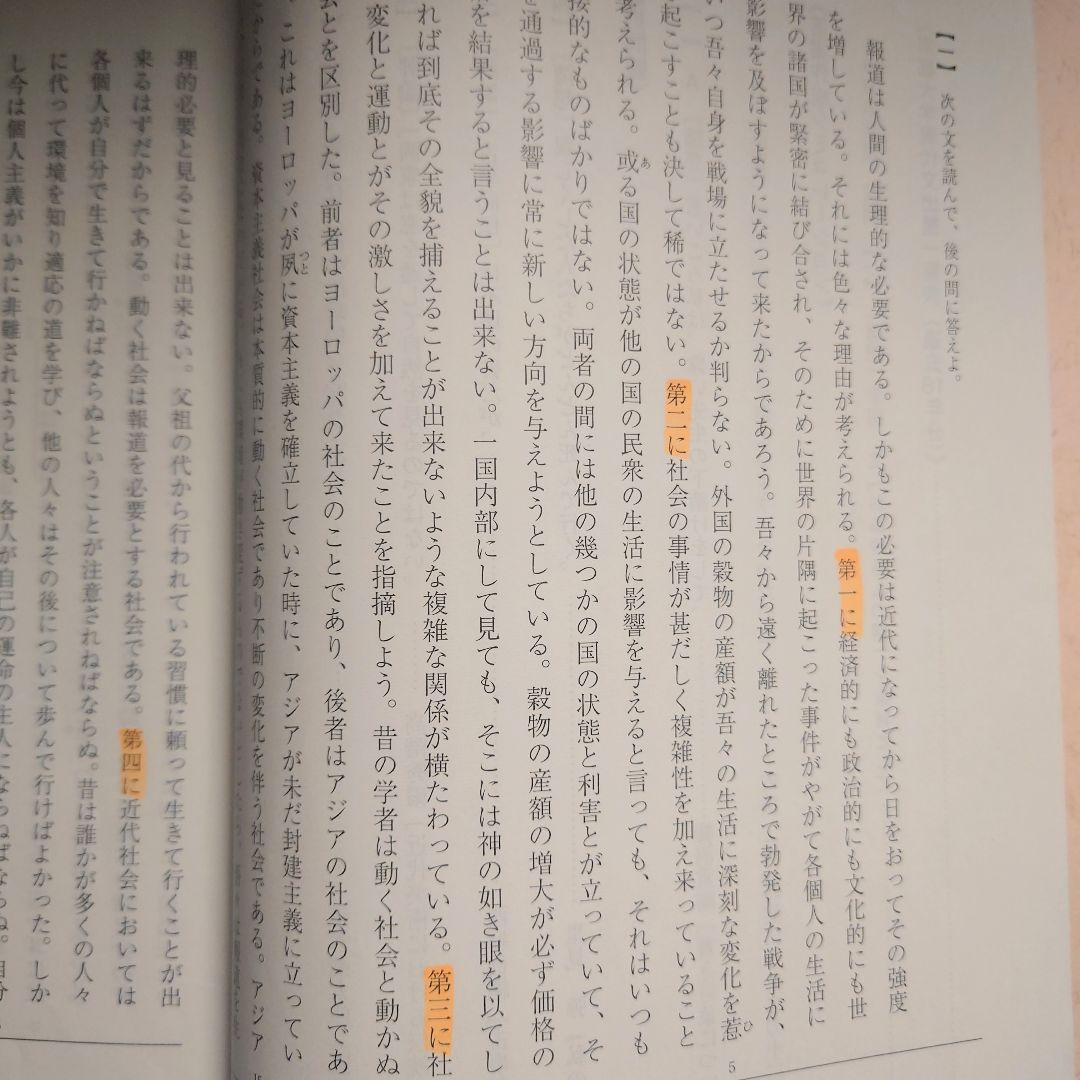 【一】 次の文を読んで、後の問に答えよ。
報道は人間の生理的な必要である。しかもこの必要は近代になってから日をおってその強度
を増している。それには色々な理由が考えられる。第一に経済的にも政治的にも文化的にも世
界の諸国が緊密に結び合され、そのために世界の片隅に起こった事件がやがて各個人の生活に
影響を及ぼすようになって来たからであろう。吾々から遠く離れたところで勃発した戦争が、
いつ吾々自身を戦場に立たせるか判らない。外国の穀物の産額が吾々の生活に深刻な変化を惹
起こすことも決して稀ではない。第二に社会の事情が甚だしく複雑性を加え来っていること
考えられる。或る国の状態が他の国の民衆の生活に影響を与えると言っても、それはいつも
接的なものばかりではない。両者の間には他の幾つかの国の状態と利害とが立っていて、そ
を通過する影響に常に新しい方向を与えようとしている。穀物の産額の増大が必ず価格の
を結果すると言うことは出来ない。一国内部にして見ても、そこには神の如き眼を以てし
れば到底その全貌を捕えることが出来ないような複雑な関係が横たわっている。第三に社
変化と運動とがその激しさを加えて来たことを指摘しよう。昔の学者は動く社会と動かぬ
会とを区別した。前者はヨーロッパの社会のことであり、後者はアジアの社会のことであ
これはヨーロッパが夙に資本主義を確立していた時に、アジアが未だ封建主義に立ってい
からである。資本主義社会は本質的に動く社会であり不断の変化を伴う社会である。アジア
理的必要と見ることは出来ない。父祖の代から行われている習慣に頼って生きて行くことが出
来るはずだからである。動く社会は報道を必要とする社会である。第四に近代社会においては
各個人が自分で生きて行かねばならぬということが注意されねばならぬ。昔は誰かが多くの人々
に代って環境を知り適応の道を学び、他の人々はその後について歩んで行けばよかった。しか
し今は個人主義がいかに非難されようとも、各人が自己の運命の主人にならねばならぬ。自分
5